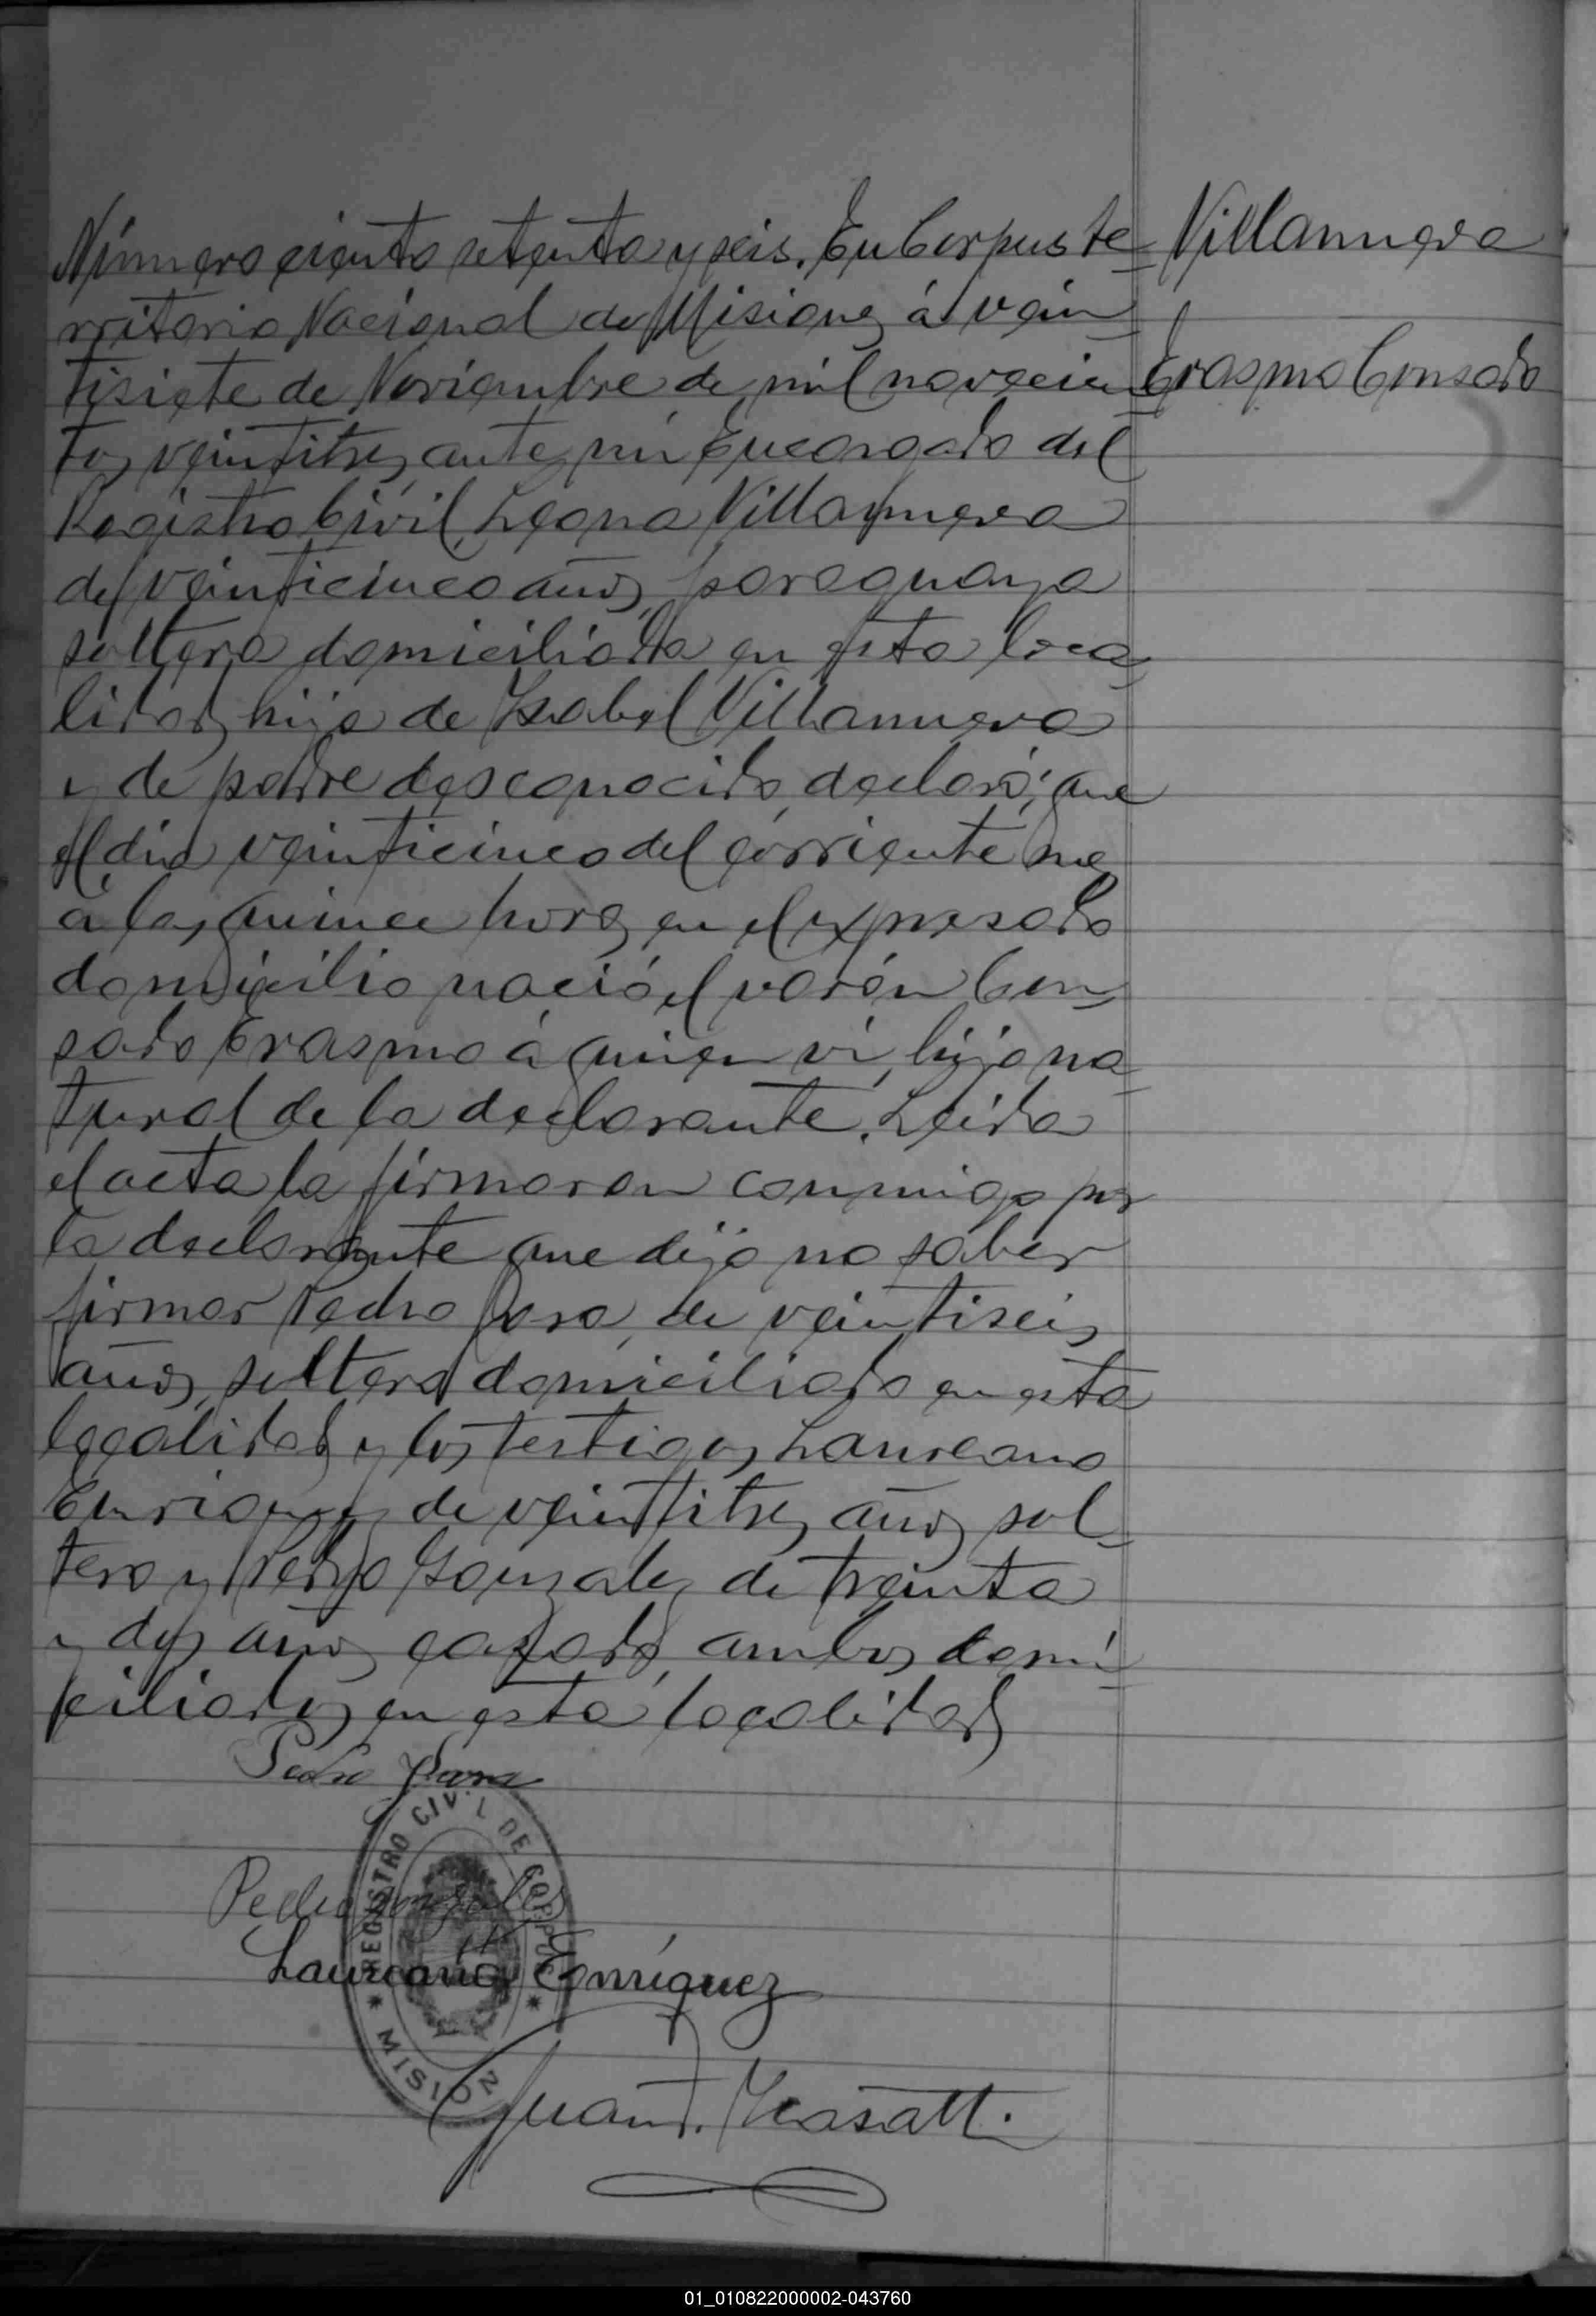 Número ciento setenta y seis. En Corpus te-
rritorio Nacional de Misiones á vein
tisiete de Noviembre de mil novecien
tos veintitres, ante mí Encargado del
Registro Civil, Leona Villanueva
de veinticinco años, paraguaya
soltera domiciliada en esta loca-
lidad, hija de Ysabel Villanueva
y de padre desconocido, declaró; que
el dia veinticinco del corriente mes
a las quince horas en el expresado
domicilio nació el varón Con-
sado Erasmo á quien ví, hijo na-
tural de la declarante. Leida
el acta la firmaron conmigo por
la declarante que dijo no saber
firmar Pedro de veintiseis
años, soltero domiciliado en esta
localidad y los testigos Laureano
Enriquez de veintitres años sol-
tero y Pedro Gonzalez de treinta
y dos años casado, ambos domi-
ciliados en esta localidad
Pedro
Pedro Gonzalez
Laureano Enríquez
Juan
Villanueva
Erasmo Consado
REGISTRO CIVIL DE CORPUS
* MISION *
01_010822000002-043760